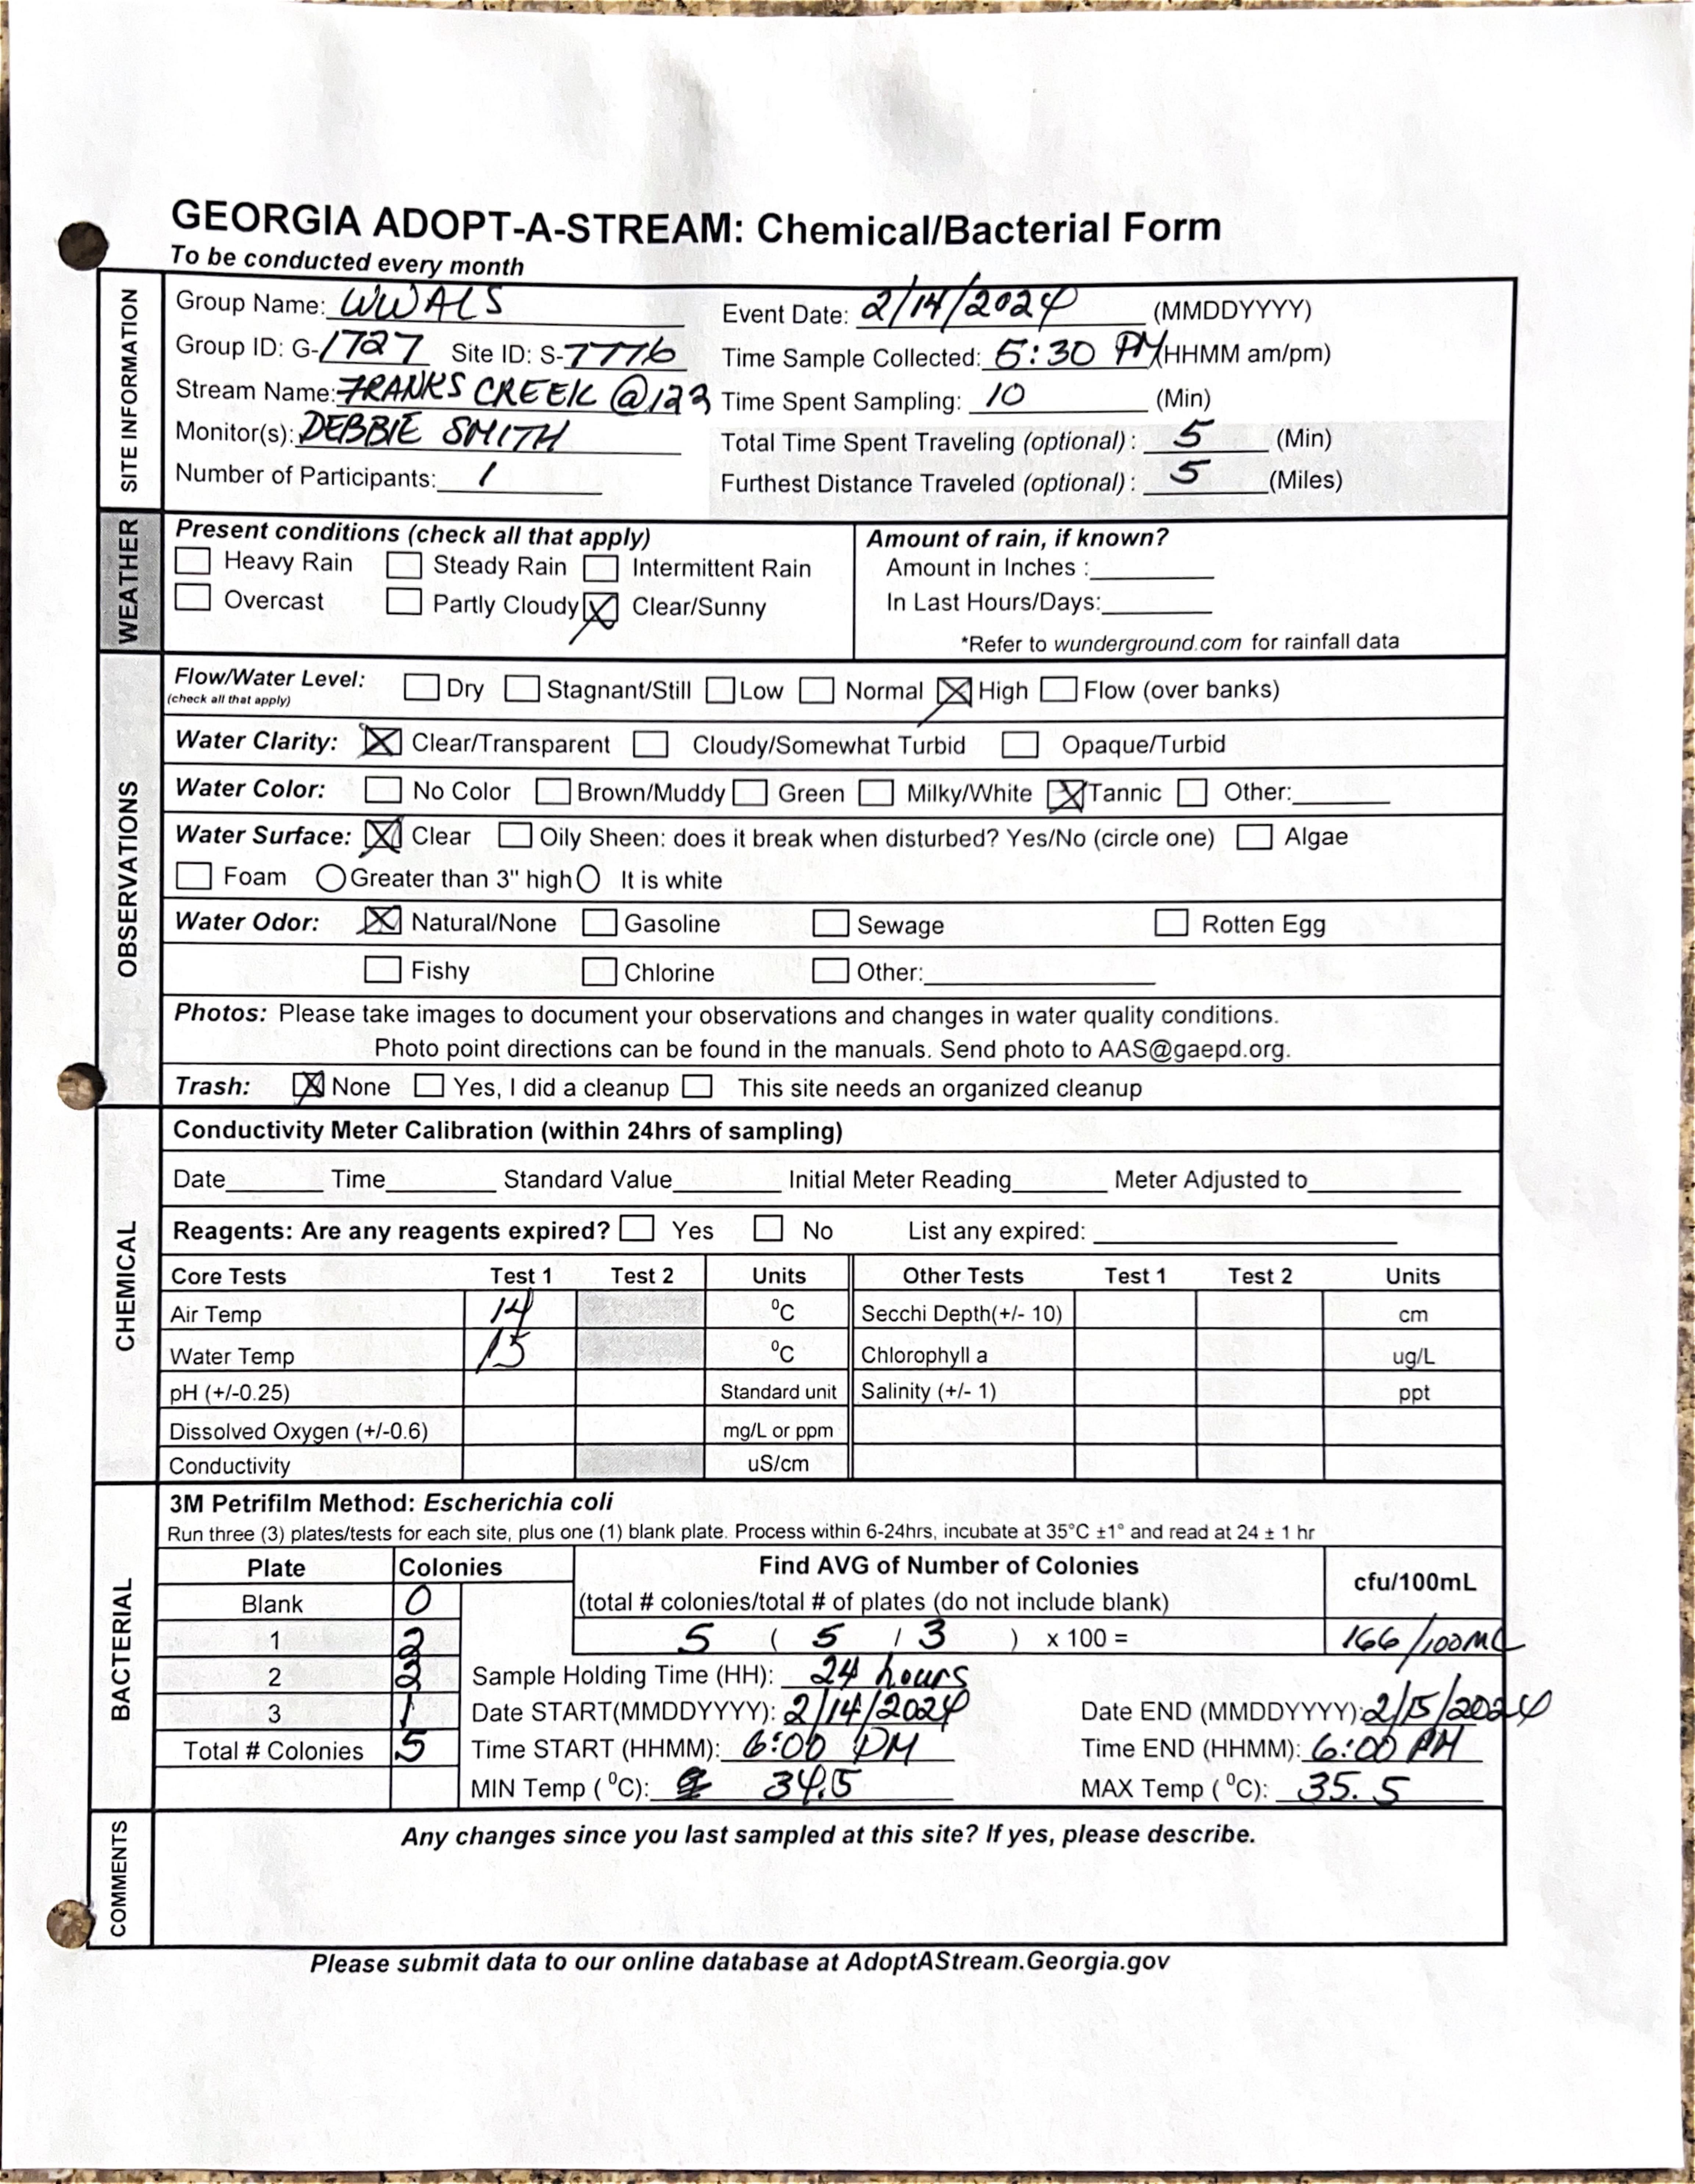 GEORGIA ADOPT-A-STREAM: Chemical/Bacterial Form
To be conducted every month
SITE INFORMATION
Group Name: WWALS Event Date: 2/14/2024 (MMDDYYYY)
Group ID: G-1727 Site ID: S-7776 Time Sample Collected: 5:30 PM (HHMM am/pm)
Stream Name: FRANKS CREEK @122 Time Spent Sampling: 10 (Min)
Monitor(s): DEBBIE SMITH Total Time Spent Traveling (optional): 5 (Min)
Number of Participants: 1 Furthest Distance Traveled (optional): 5 (Miles)
WEATHER
Present conditions (check all that apply) Amount of rain, if known?
Heavy Rain Steady Rain Intermittent Rain Amount in Inches :
Overcast Partly Cloudy Clear/Sunny In Last Hours/Days:
*Refer to wunderground.com for rainfall data
OBSERVATIONS
Flow/Water Level: Dry Stagnant/Still Low Normal High Flow (over banks)
(check all that apply)
Water Clarity: Clear/Transparent Cloudy/Somewhat Turbid Opaque/Turbid
Water Color: No Color Brown/Muddy Green Milky/White Tannic Other:
Water Surface: Clear Oily Sheen: does it break when disturbed? Yes/No (circle one) Algae
Foam Greater than 3" high It is white
Water Odor: Natural/None Gasoline Sewage Rotten Egg
Fishy Chlorine Other:
Photos: Please take images to document your observations and changes in water quality conditions.
Photo point directions can be found in the manuals. Send photo to AAS@gaepd.org.
Trash: None Yes, I did a cleanup This site needs an organized cleanup
CHEMICAL
Conductivity Meter Calibration (within 24hrs of sampling)
Date Time Standard Value Initial Meter Reading Meter Adjusted to
Reagents: Are any reagents expired? Yes No List any expired:
Core Tests Test 1 Test 2 Units Other Tests Test 1 Test 2 Units
Air Temp 14 ⁰C Secchi Depth(+/- 10) cm
Water Temp 15 ⁰C Chlorophyll a ug/L
pH (+/-0.25) Standard unit Salinity (+/- 1) ppt
Dissolved Oxygen (+/-0.6) mg/L or ppm
Conductivity uS/cm
BACTERIAL
3M Petrifilm Method: Escherichia coli
Run three (3) plates/tests for each site, plus one (1) blank plate. Process within 6-24hrs, incubate at 35°C ±1° and read at 24 ± 1 hr
Plate Colonies Find AVG of Number of Colonies cfu/100mL
Blank 0 (total # colonies/total # of plates (do not include blank)
1 2 5 ( 5 / 3 ) x 100 = 166/100ML
2 2 Sample Holding Time (HH): 24 hours
3 1 Date START(MMDDYYYY): 2/14/2024 Date END (MMDDYYYY): 2/15/2024
Total # Colonies 5 Time START (HHMM): 6:00 PM Time END (HHMM): 6:00 PM
MIN Temp (⁰C): 34.5 MAX Temp (⁰C): 35.5
COMMENTS
Any changes since you last sampled at this site? If yes, please describe.
Please submit data to our online database at AdoptAStream.Georgia.gov